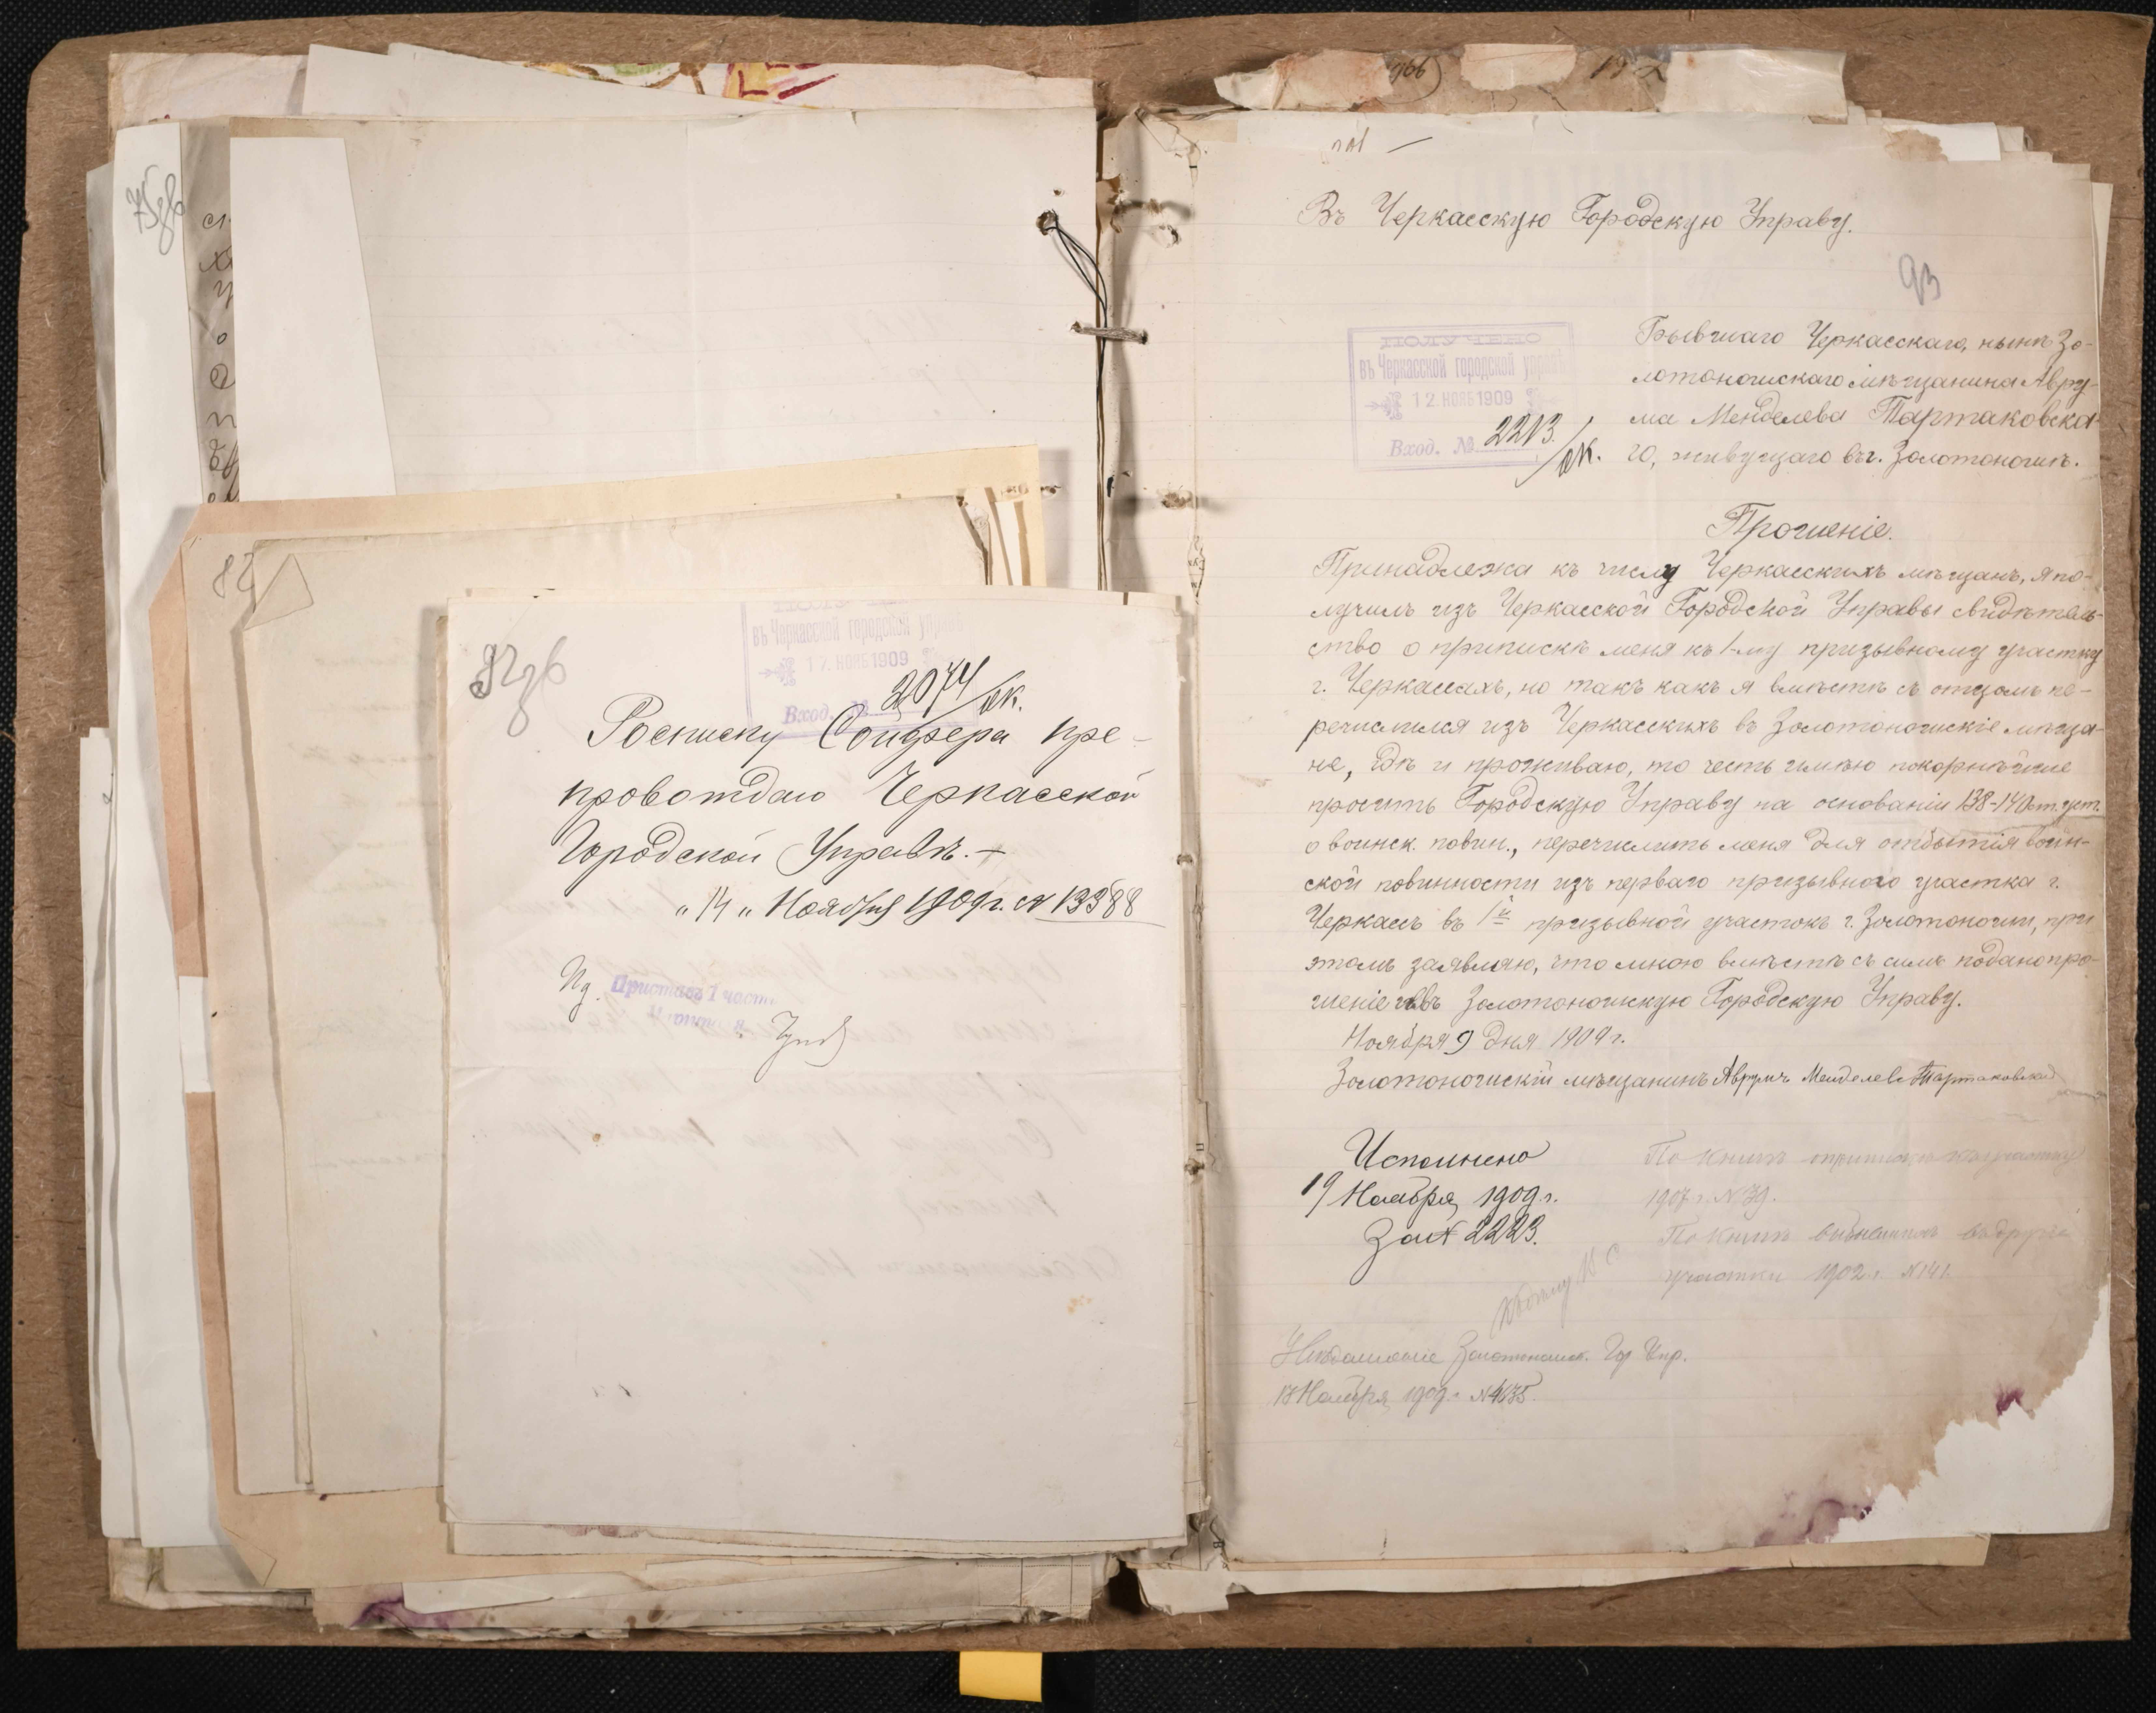 ПОЛУЧЕНО
въ Черкасской городской управѣ
17. НОЯБ 1909
Вход.
2074/вк.
Росписку Сойфера пре-
провождаю Черкасской
Городской Управѣ. —
„ 14 „ Ноября 1909 г. № 13388
Пристав 1 части
966
Въ Черкасскую Городскую Управу.
93
ПОЛУЧЕНО
въ Черкасской городской управѣ
12. НОЯБ 1909
Вход. № 2213/вк.
Бывшаго Черкасскаго, нынѣ Зо-
лотоношскаго мѣщанина Авру-
ма Менделева Тартаковска-
го, живущаго въ г. Золотоношѣ.
Прошеніе.
Принадлежа къ числу Черкасскихъ мѣщанъ, я по-
лучилъ изъ Черкасской Городской Управы свидѣтель-
ство о припискѣ меня къ 1-му призывному участку
г. Черкассахъ, но такъ какъ я вмѣстѣ съ отцомъ пе-
речислился изъ Черкасскихъ въ Золотоношскіе мѣща-
не, гдѣ и проживаю, то честь имѣю покорнѣйше
просить Городскую Управу на основаніи 138-140 ст. уст.
о воинск. повин., перечислить меня для отбытія воин-
ской повинности изъ перваго призывного участка г.
Черкассъ въ 1й призывной участокъ г. Золотоноши, при
этомъ заявляю, что мною вмѣстѣ съ симъ подано про-
шеніе въ Золотоношскую Городскую Управу.
Ноября 9 дня 1909 г.
Золотоношскій мѣщанинъ Аврумъ Менделевъ Тартаковскій
Исполнено
19 Ноября 1909 г.
За № 2223.
По книгѣ приписки къ участку
1907 г. № 79.
По книгѣ въ другіе
участки 1902 г. № 141.
Увѣдомленіе Золотоношск. Гор. Упр.
13 Ноября 1909 г. № 4635.